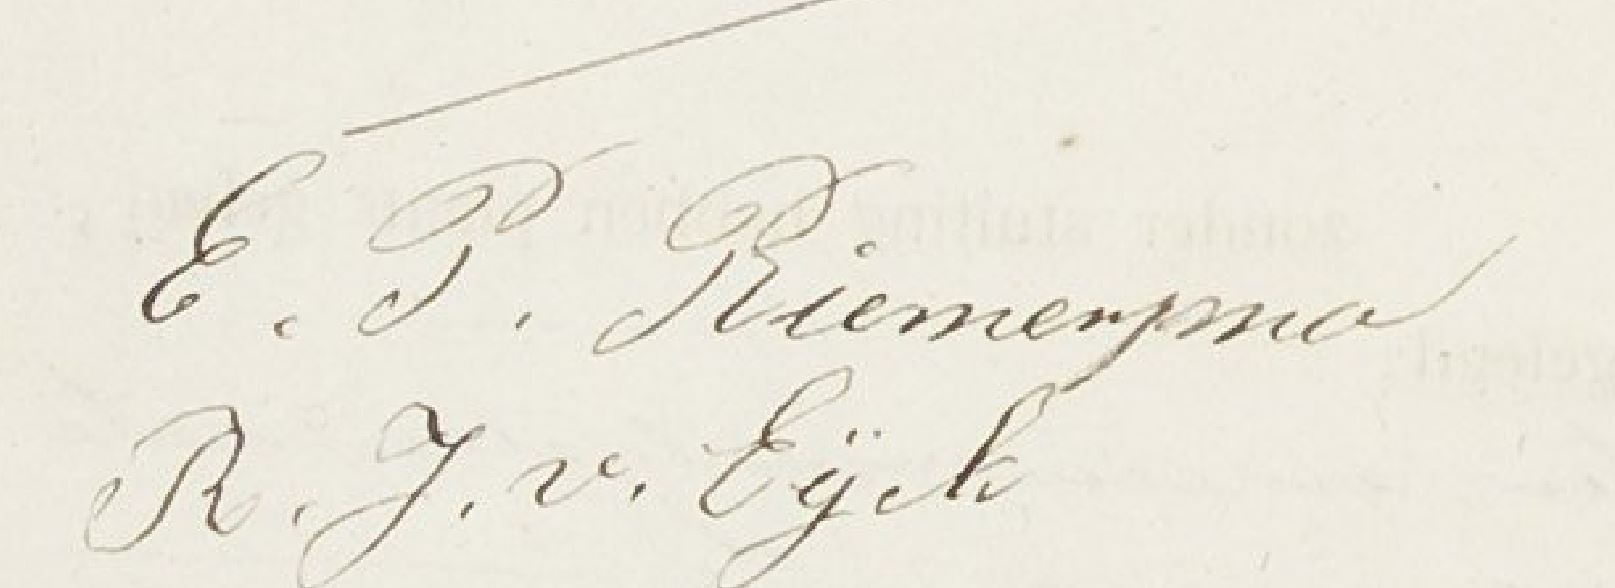 E. P. Riemersma
R. J. v. Eijck